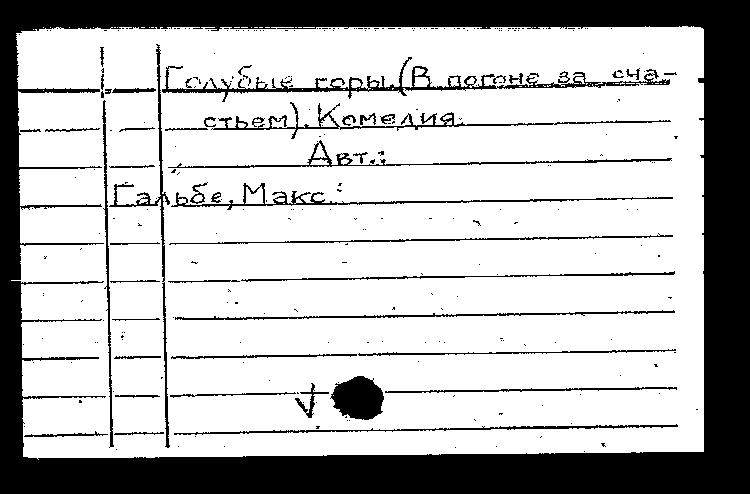 Голубые горы.(В погоне за сча-
стьем). Комедия.
Авт.:
Гальбе, Макс.: